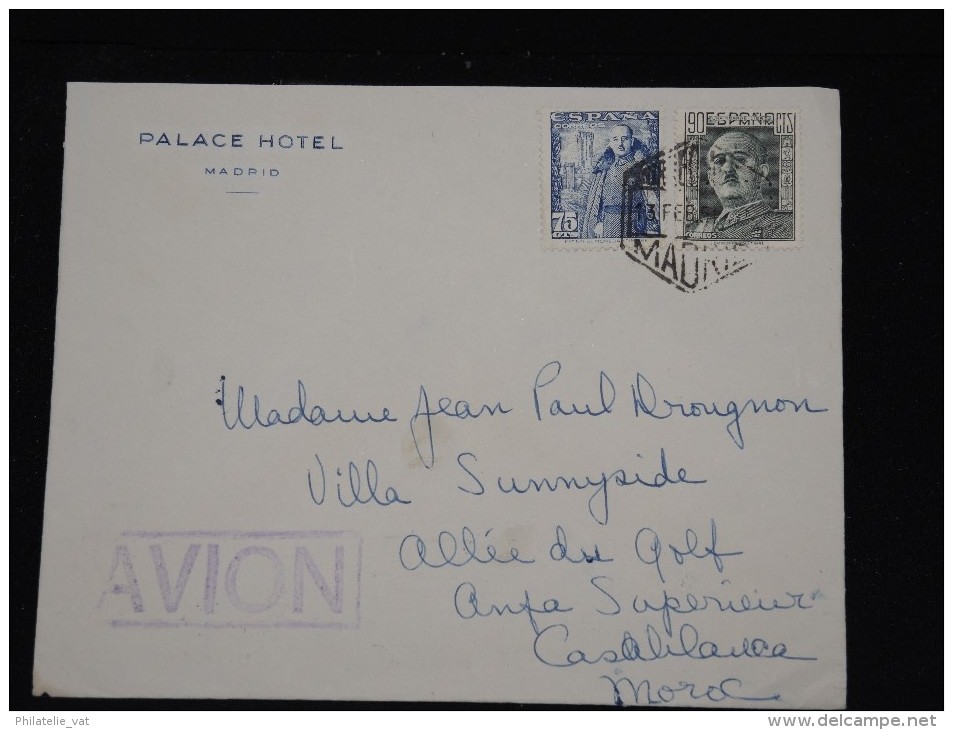 PALACE HOTEL
MADRID
ESPAÑA
CORREOS
75
90 ESPAÑA CTS
CORREOS
13 FEB
MADRID
Madame Jean Paul Drougnon
Villa Sunnyside
Allée du Golf
Anfa Supérieur
Casablanca
Maroc
AVION
Philatelie_vat
delcampe.net